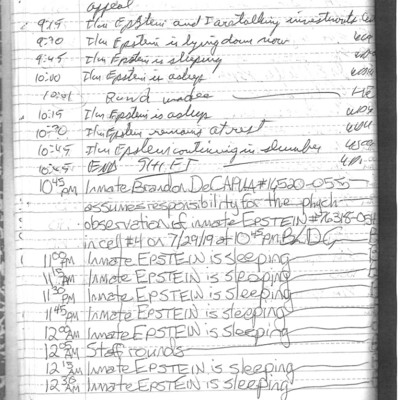 appeal
9:15 I/m Epstein and I are talking investments
9:30 I/m Epstein is lying down now
9:45 I/m Epstein is sleeping
10:00 I/m Epstein is asleep
10:01 Round made
10:15 I/m Epstein is asleep
10:30 I/m Epstein remains at rest
10:45 I/m Epstein continuing in slumber
10:45 END SHIFT
10:45 PM Inmate Brandon DeCAPUA #16520-055
assumes responsibility for the phych
observation of inmate EPSTEIN #76318-054
in cell #4 on 7/29/19 at 10:45 PM. BXDG
11:00 PM Inmate EPSTEIN is sleeping
11:15 PM Inmate EPSTEIN is sleeping
11:30 PM Inmate EPSTEIN is sleeping
11:45 PM Inmate EPSTEIN is sleeping
12:00 AM Inmate EPSTEIN is sleeping
12:05 AM Staff rounds
12:15 AM Inmate EPSTEIN is sleeping
12:30 AM Inmate EPSTEIN is sleeping